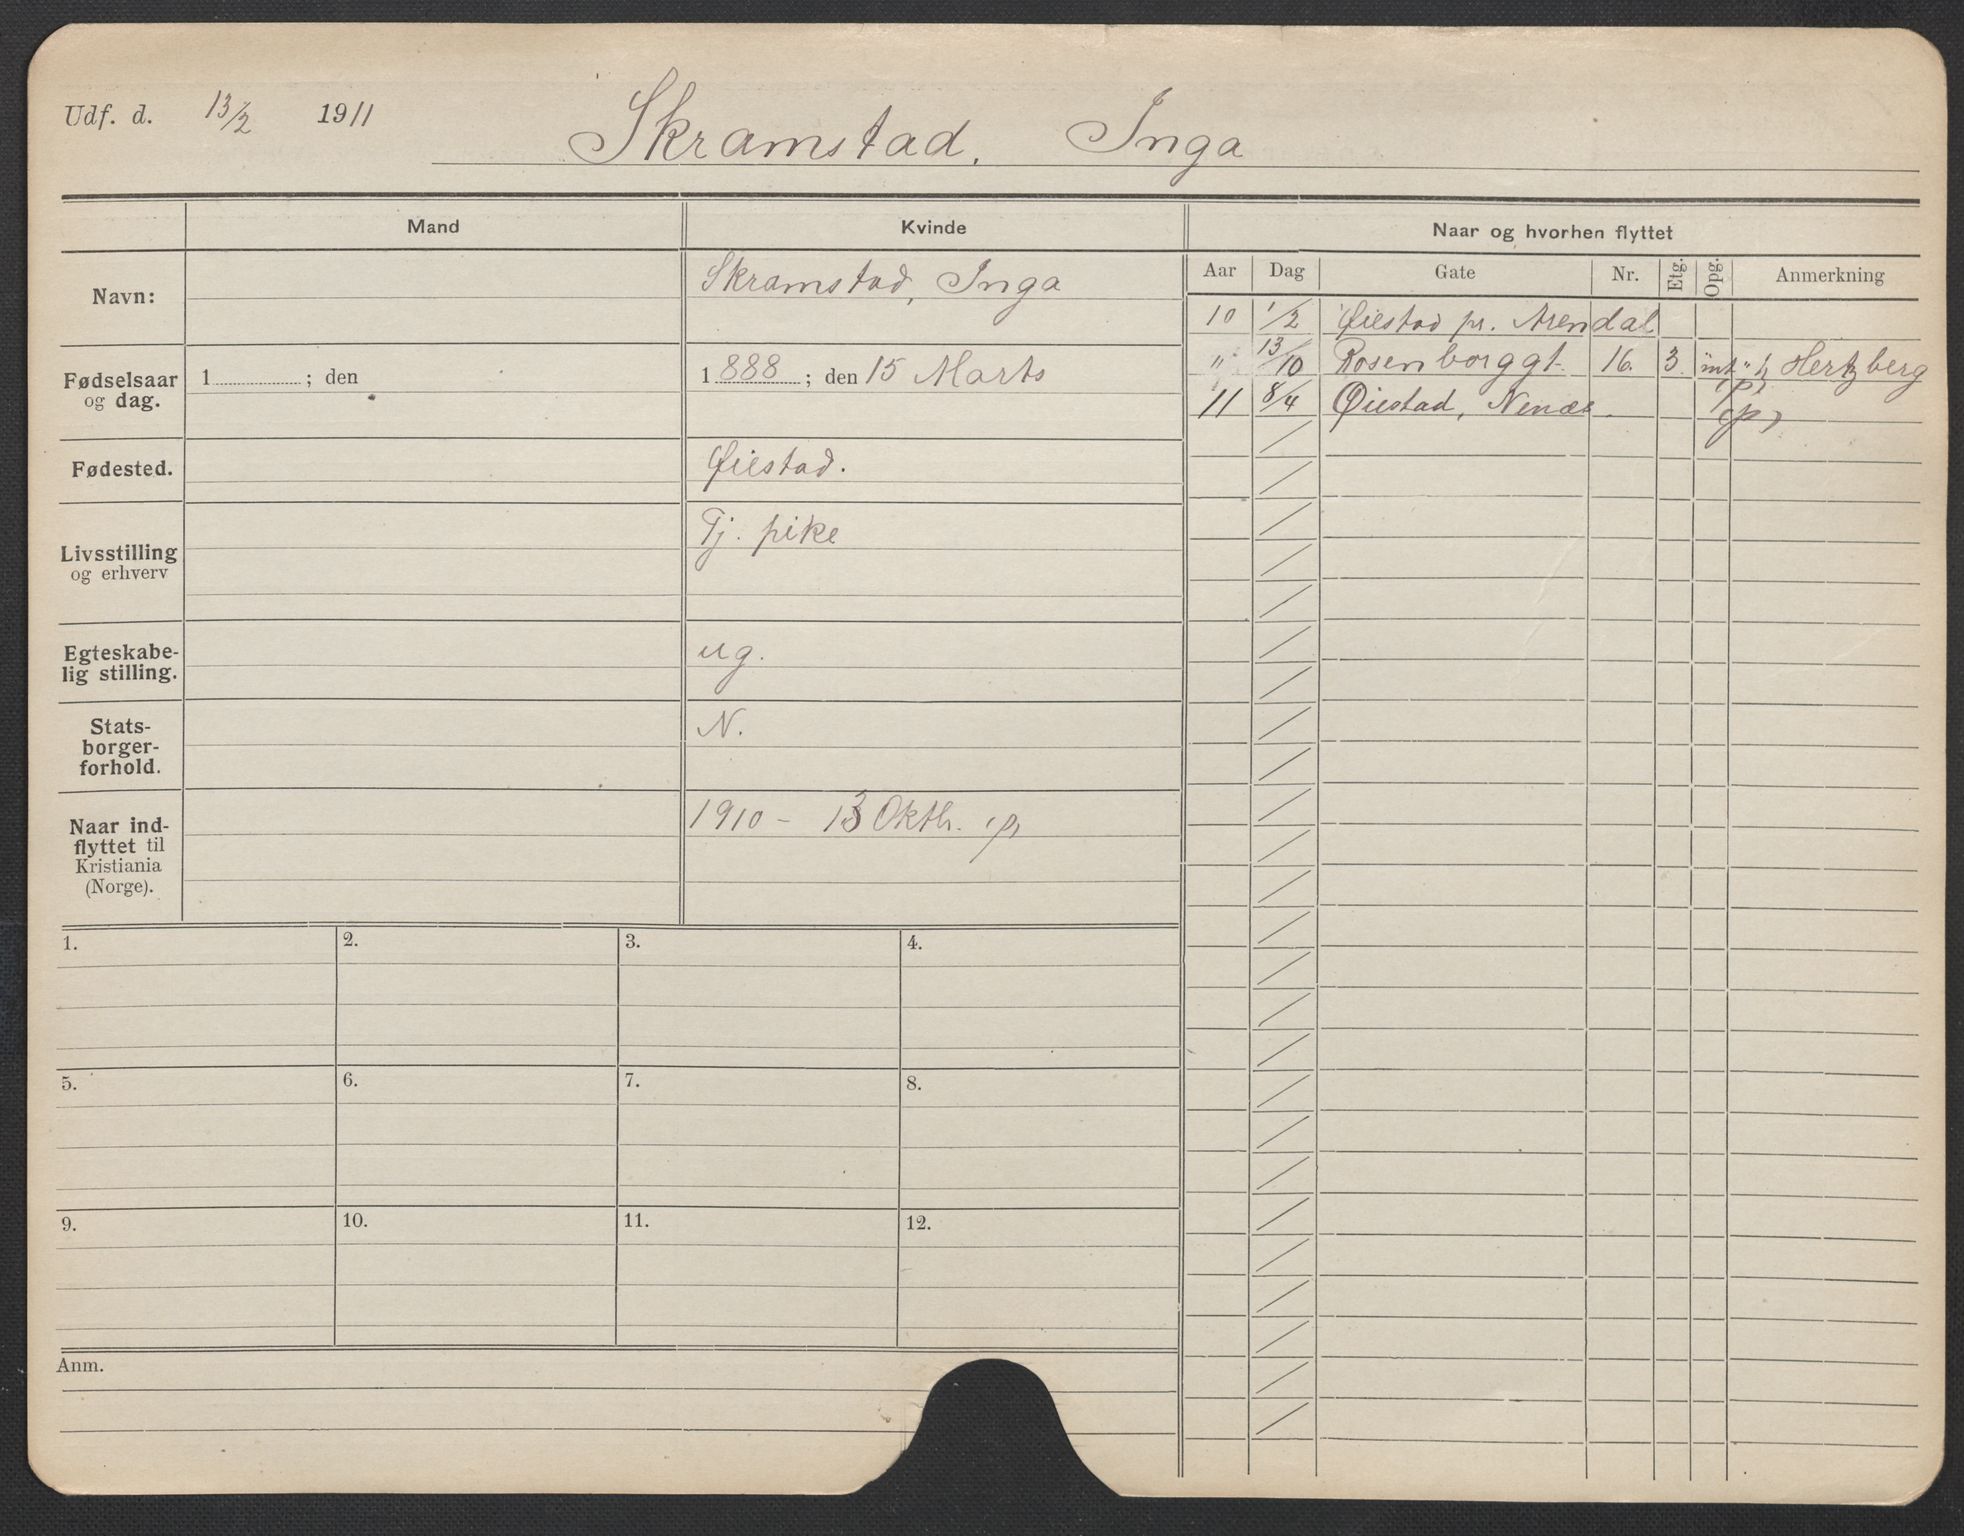 Udf. d. 13/2 1911
Skramstad, Inga
Mand
Kvinde
Naar og hvorhen flyttet
Navn:
Skramstad, Inga
Fødselsaar
og dag.
1 ; den
1888 ; den 15 Marts
Fødested.
Øiestad.
Livsstilling
og erhverv
Tj. pike
Egteskabe-
lig stilling.
ug.
Stats-
borger-
forhold.
N.
Naar ind-
flyttet til
Kristiania
(Norge).
1910 - 13 Oktb. (p)
Aar Dag Gate Nr. Etg. Opg. Anmerkning
10 1/2 Øiestad pr. Arendal
" 13/10 Rosenborggt. 16. 3. Hertzberg
(p)
11 8/4 Øiestad, (p)
1. 2. 3. 4.
5. 6. 7. 8.
9. 10. 11. 12.
Anm.